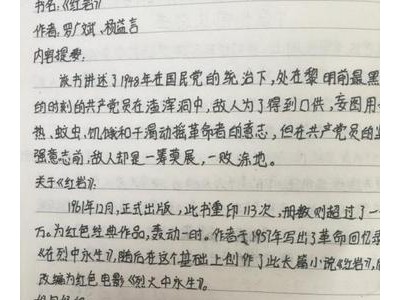 书名:《红岩》
作者:罗广斌、杨益言
内容提要:
该书讲述了1948年在国民党的统治下,处在黎明前最黑
的时刻的共产党员在渣滓洞中,敌人为了得到口供,妄图用
热、蚊虫、饥饿和干渴动摇革命者的意志,但在共产党员的
强意志前,敌人却是一筹莫展,一败涂地。
关于《红岩》:
1961年12月,正式出版,此书重印113次,册数则超过了一
万。为红色经典作品,轰动一时。作者于1957年写出了革命回忆录
《在烈中永生》,随后在这个基础上创作了此长篇小说《红岩》,
改编为红色电影《烈火中永生》。